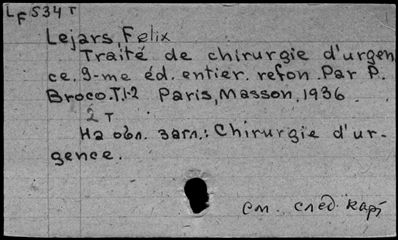 LF 534 T
Lejars, Felix
Traité de chirurgie d'urgen
ce. 9-me éd. entier. refon. Par P.
Broco. T.1-2 Paris, Masson, 1936
2 T
На обл. загл.: Chirurgie d'ur-
gence.
см. след. карт